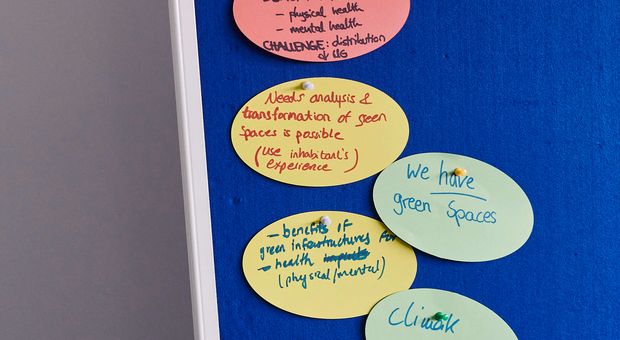 - physical health
- mental health
CHALLENGE: distribution
Needs analysis &
transformation of green
Spaces is possible
(use inhabitant's
experience)
We have
green Spaces
- benefits of
green infrastructures for
- health
(physical/mental)
Climate